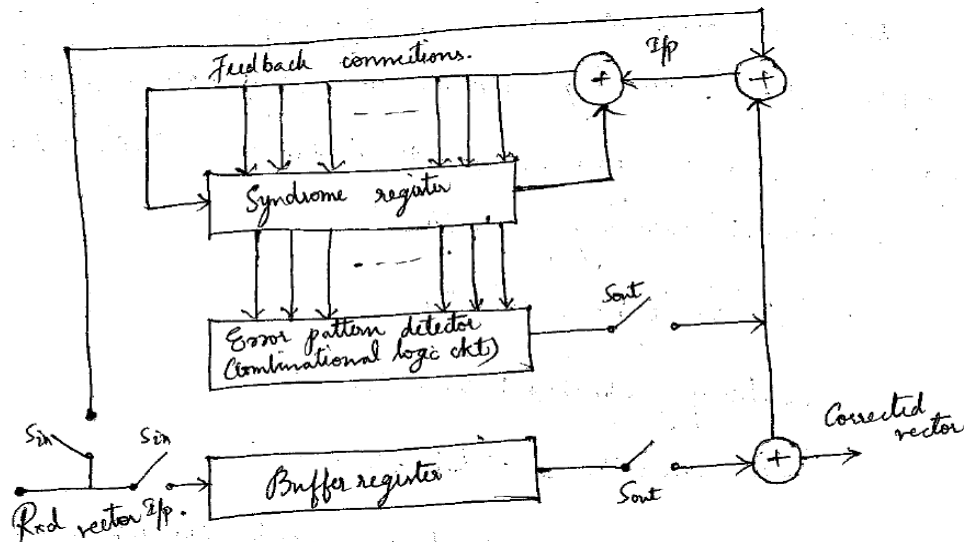 Feedback connections.
I/p
Syndrome register
Error pattern detector
(Combinational logic ckt)
Sout
Sin
Sin
Buffer register
Sout
Corrected
vector
Rxd vector I/p.